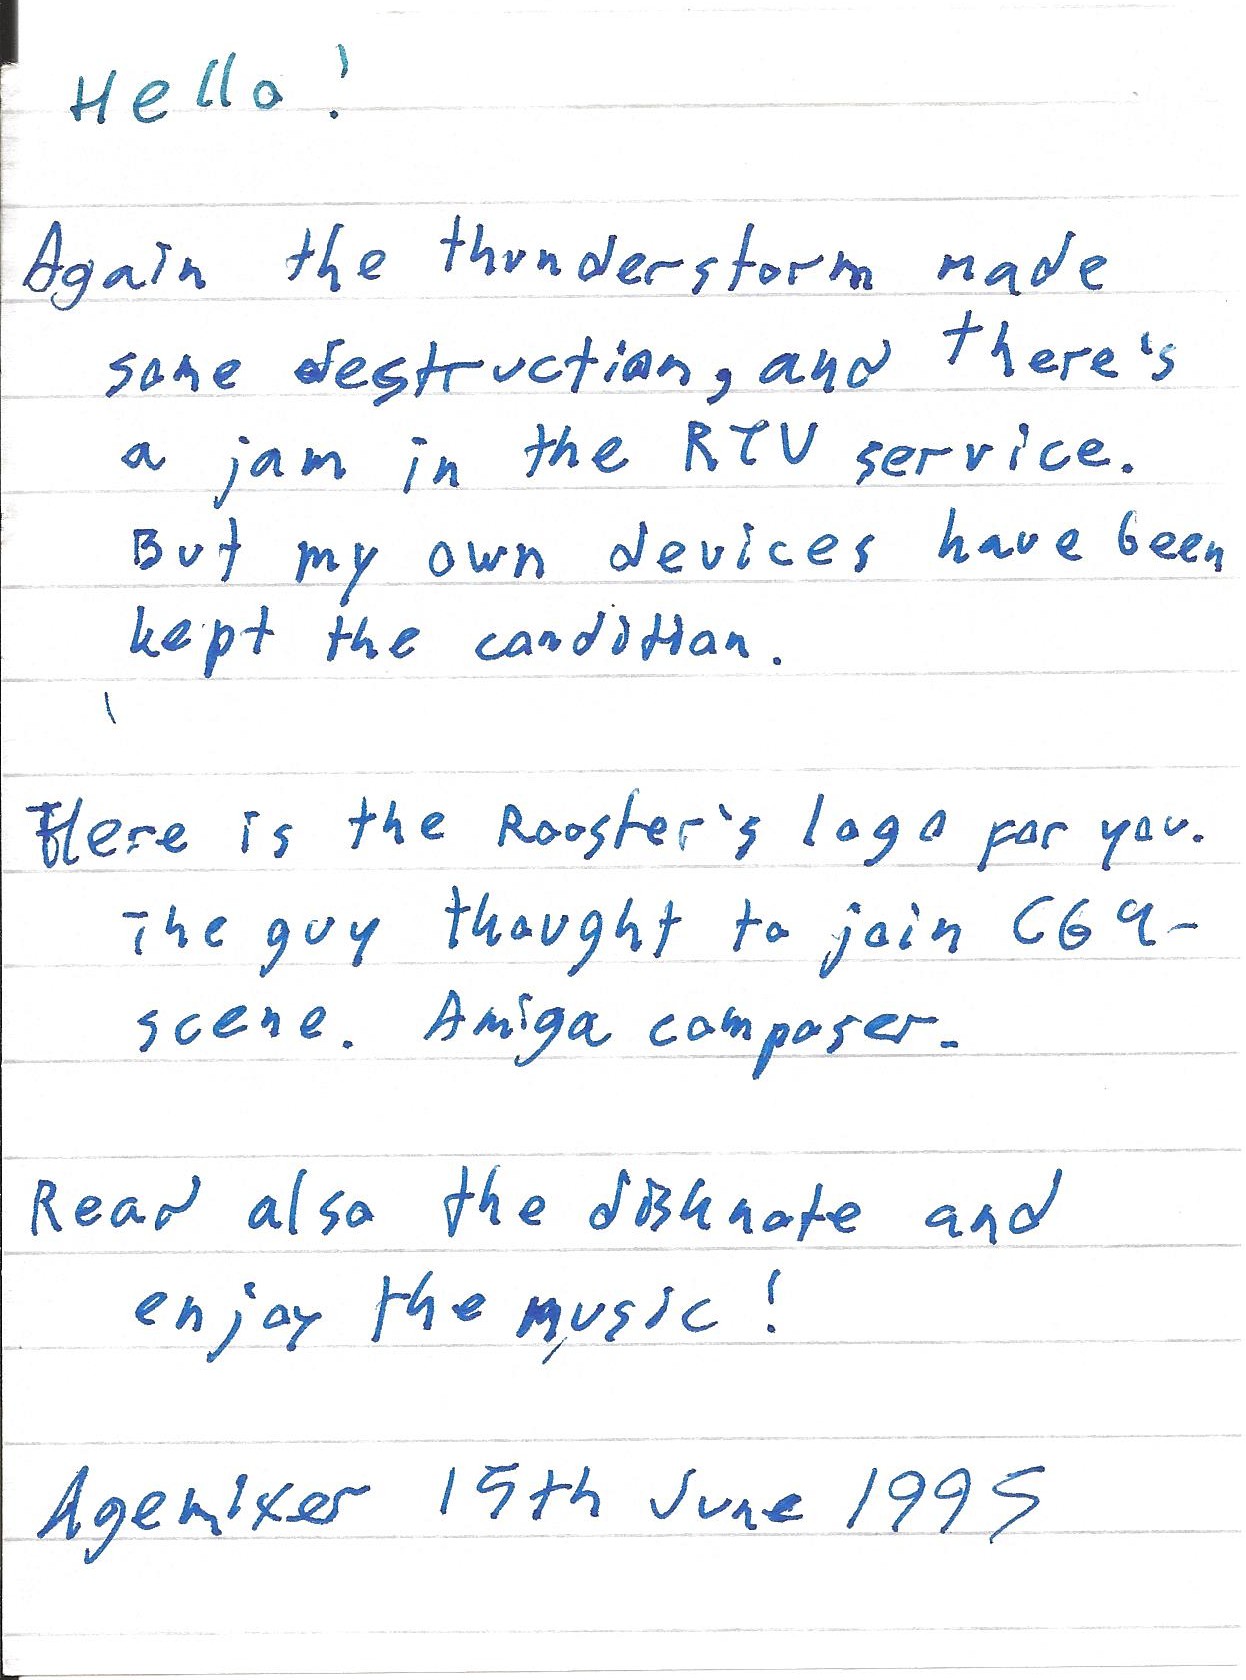 Hello!
Again the thunderstorm made
some destruction, and there's
a jam in the RTV service.
But my own devices have been
kept the condition.
Here is the Rooster's logo for you.
The guy thought to join C64-
scene. Amiga composer.
Read also the disknote and
enjoy the music!
Agemixer 15th June 1995